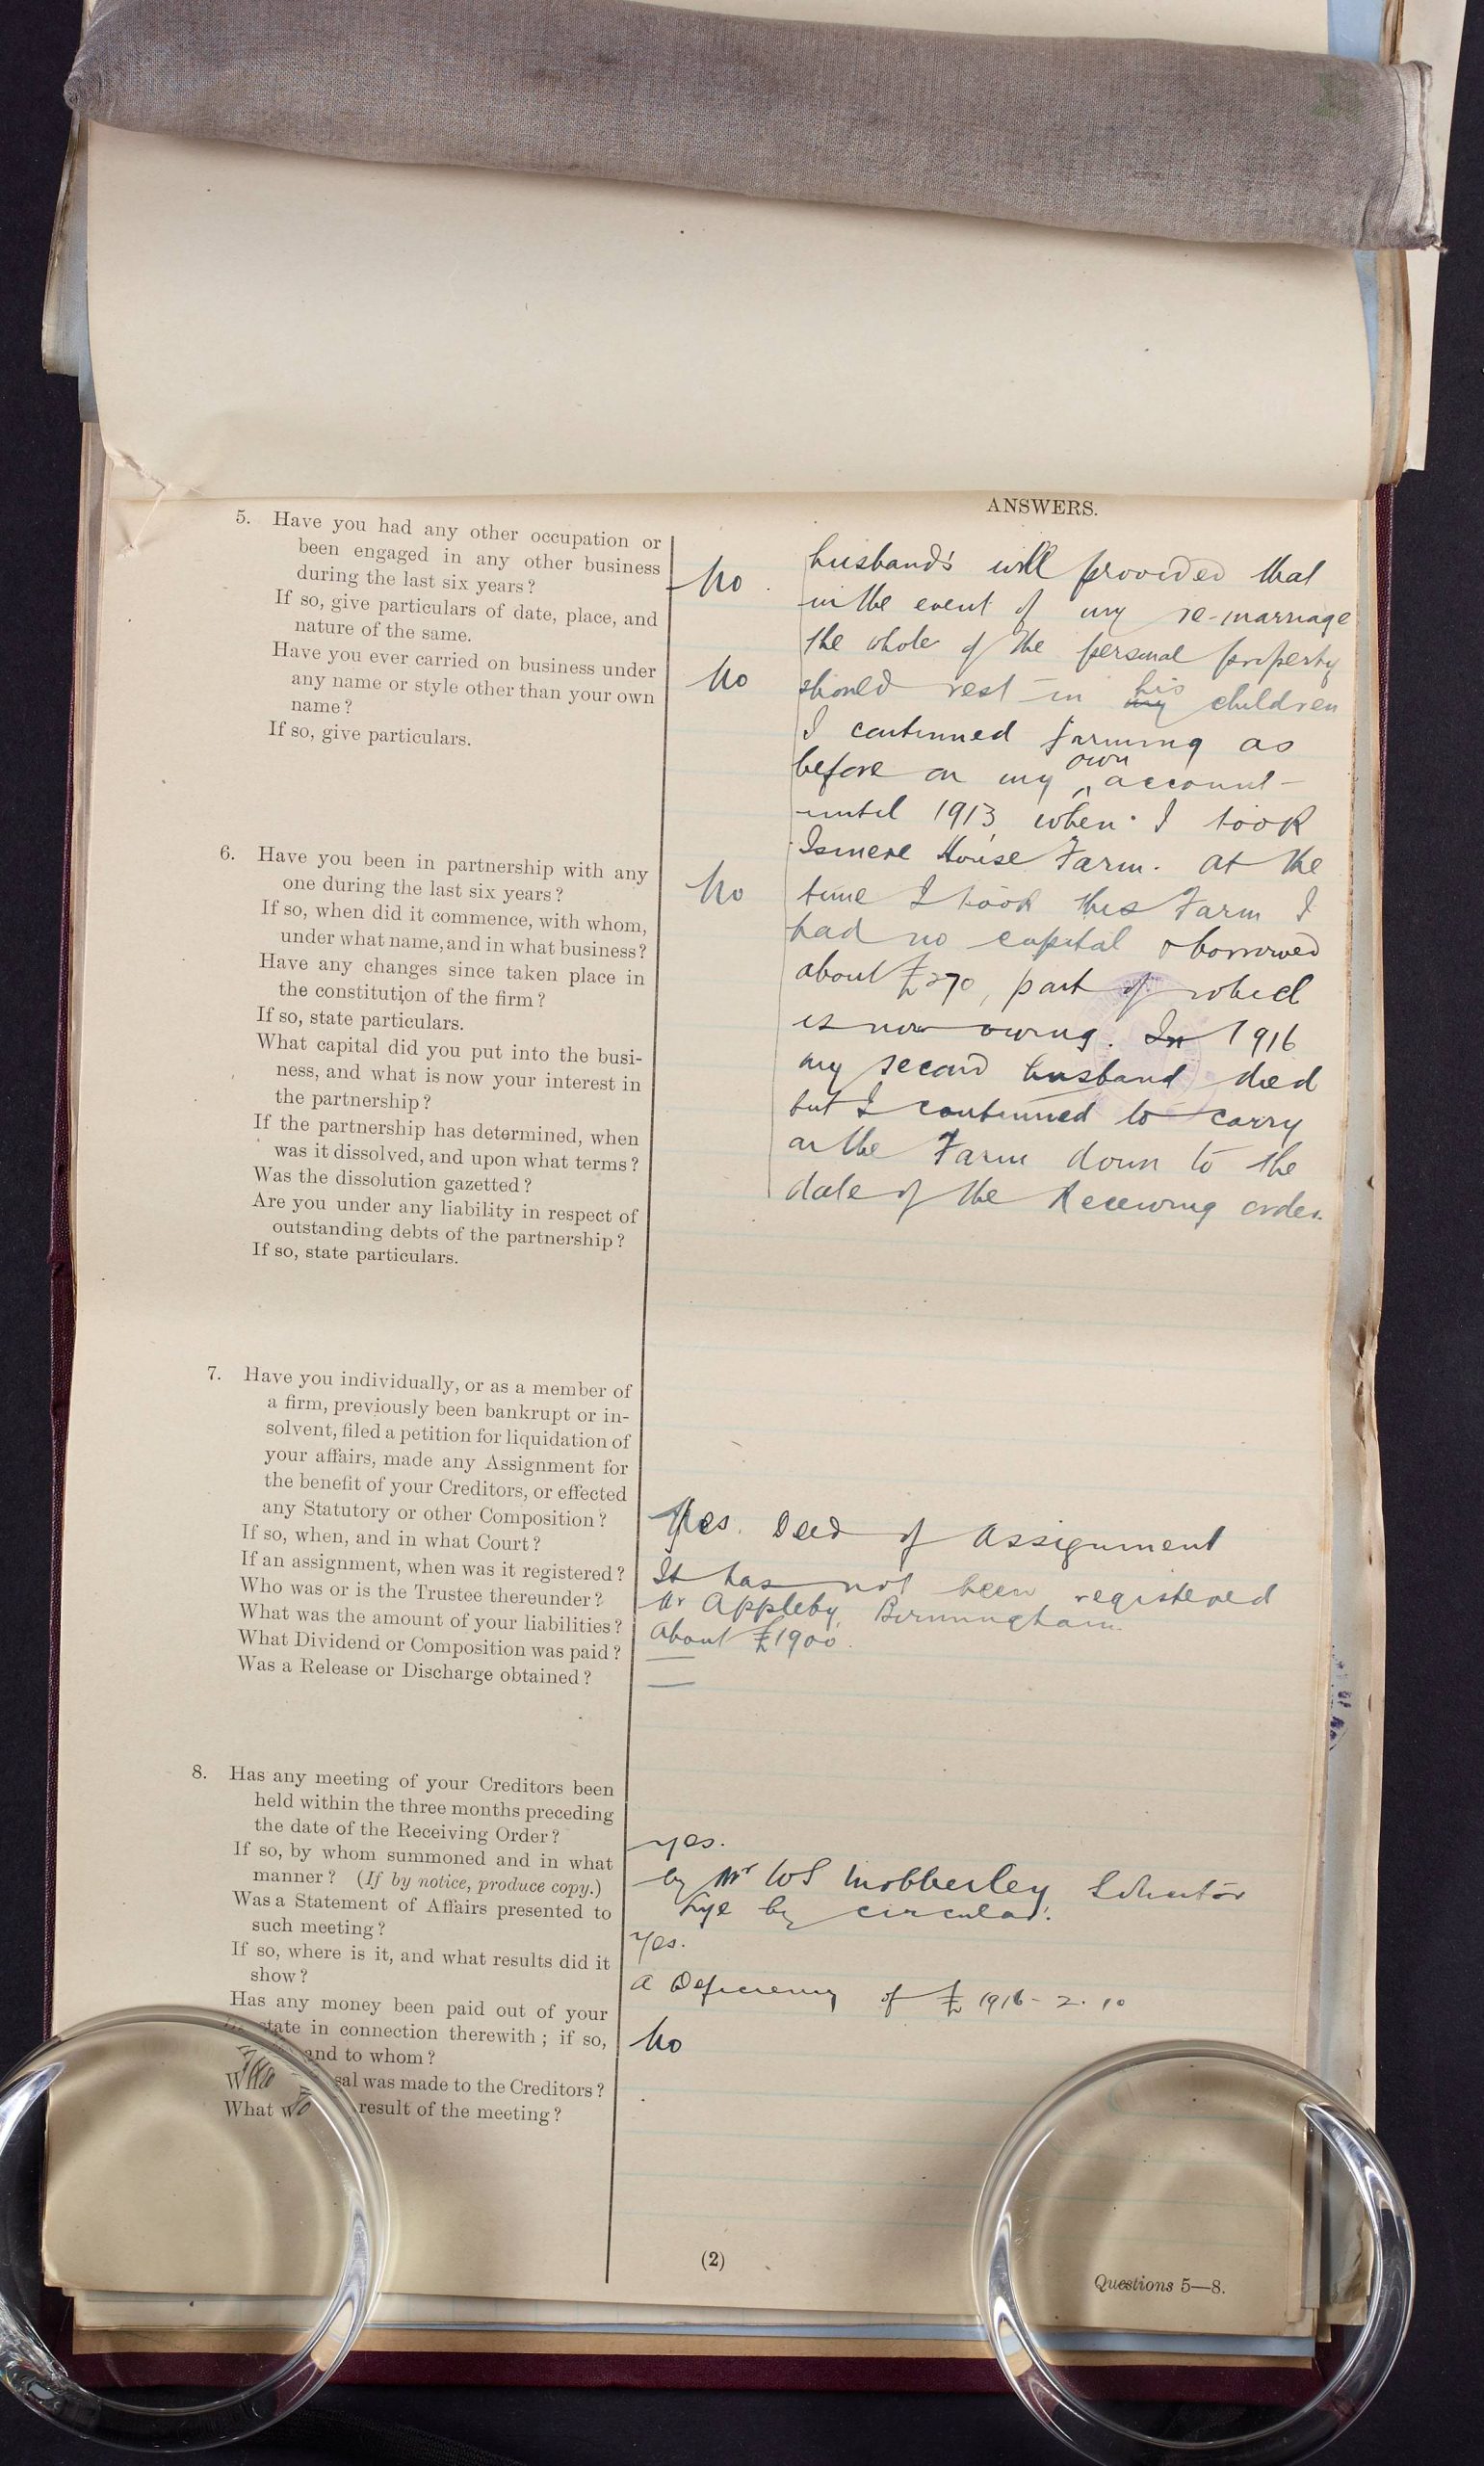 ANSWERS.
5. Have you had any other occupation or
been engaged in any other business
during the last six years?
No.
If so, give particulars of date, place, and
nature of the same.
Have you ever carried on business under
any name or style other than your own
name?
No
If so, give particulars.
husband's will provided that
in the event of my re-marriage
the whole of the personal property
should vest in my his children
I continued farming as
before on my own account
until 1913 when I took
Ismere House Farm. At the
time I took this Farm I
had no capital & borrowed
about £270, part of which
is now owing. In 1916
my second husband died
but I continued to carry
on the Farm down to the
date of the Receiving order.
6. Have you been in partnership with any
one during the last six years?
No
If so, when did it commence, with whom,
under what name, and in what business?
Have any changes since taken place in
the constitution of the firm?
If so, state particulars.
What capital did you put into the busi-
ness, and what is now your interest in
the partnership?
If the partnership has determined, when
was it dissolved, and upon what terms?
Was the dissolution gazetted?
Are you under any liability in respect of
outstanding debts of the partnership?
If so, state particulars.
7. Have you individually, or as a member of
a firm, previously been bankrupt or in-
solvent, filed a petition for liquidation of
your affairs, made any Assignment for
the benefit of your Creditors, or effected
any Statutory or other Composition?
If so, when, and in what Court?
If an assignment, when was it registered?
Who was or is the Trustee thereunder?
What was the amount of your liabilities?
What Dividend or Composition was paid?
Was a Release or Discharge obtained?
Yes. Deed of Assignment
It has not been registered
Mr Appleby, Birmingham.
About £1900.
—
—
8. Has any meeting of your Creditors been
held within the three months preceding
the date of the Receiving Order?
If so, by whom summoned and in what
manner? (If by notice, produce copy.)
Was a Statement of Affairs presented to
such meeting?
If so, where is it, and what results did it
show?
Has any money been paid out of your
state in connection therewith; if so,
and to whom?
sal was made to the Creditors?
What w result of the meeting?
Yes.
by Mr WS Mobberley Solicitor
Lye by circular.
Yes.
A Deficiency of £1916-2.10
No
(2)
Questions 5—8.